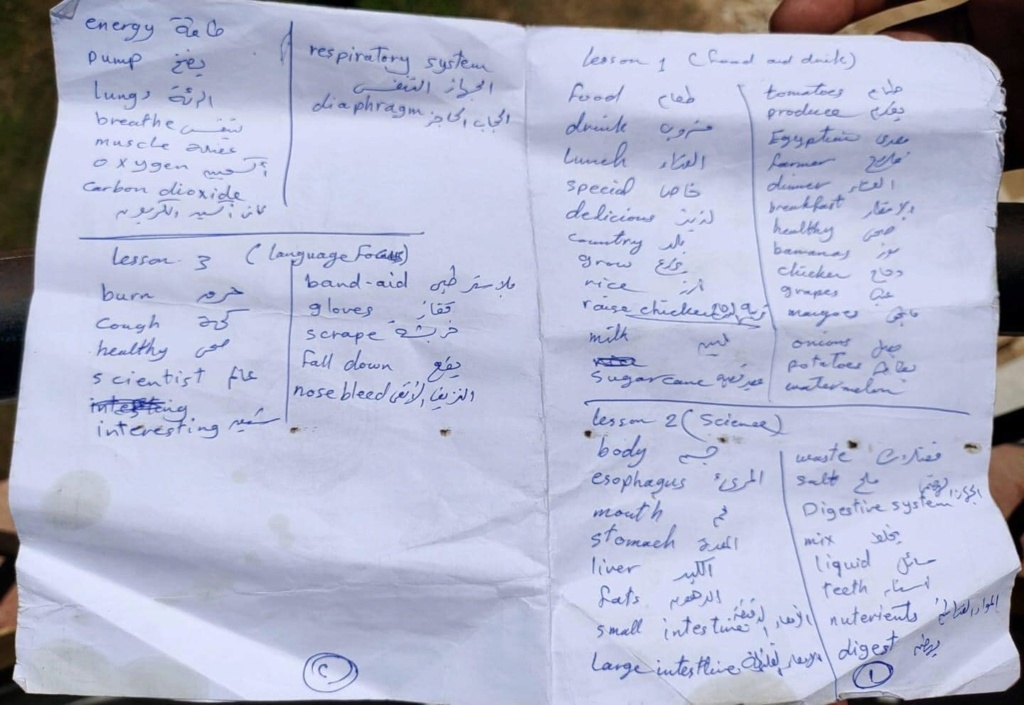 Lesson 1 (food and drink)
food طعام
drink مشروب
Lunch الغداء
special خاص
delicious لذيذ
country بلد
grow يزرع
rice أرز
raise chicken تربية الدجاج
milk لبن
sugar cane
tomatoes طماطم
produce يقدم
Egyptian مصرى
farmer فلاح
dinner العشاء
breakfast الافطار
healthy صحى
bananas موز
chicken دجاج
grapes عنب
mangoes مانجو
onions بصل
potatoes بطاطس
watermelon
lesson 2 (Science)
body جسم
esophagus المرىء
mouth فم
stomach المعدة
liver الكبد
fats الدهون
small intestine الأمعاء الدقيقة
Large intestiine الامعاء الغليظة
waste فضلات
salt ملح
Digestive system الجهاز الهضمى
mix يخلط
liquid سائل
teeth اسنان
nuterients المواد الغذائية
digest يهضم
١
energy طاقة
pump يضخ
lungs الرئة
breathe يتنفس
muscle عضلة
oxygen أكسجين
Carbon dioxide
ثانى أكسيد الكربون
respiratory system
الجهاز التنفسى
diaphragm الحجاب الحاجز
Lesson 3 (language Focus)
burn حرق
cough كحة
healthy صحى
scientist عالم
interesting
interesting مثير
band-aid بلاستر طبى
gloves قفاز
scrape خربشة
fall down يقع
nose bleed النزيف الأنفى
٢